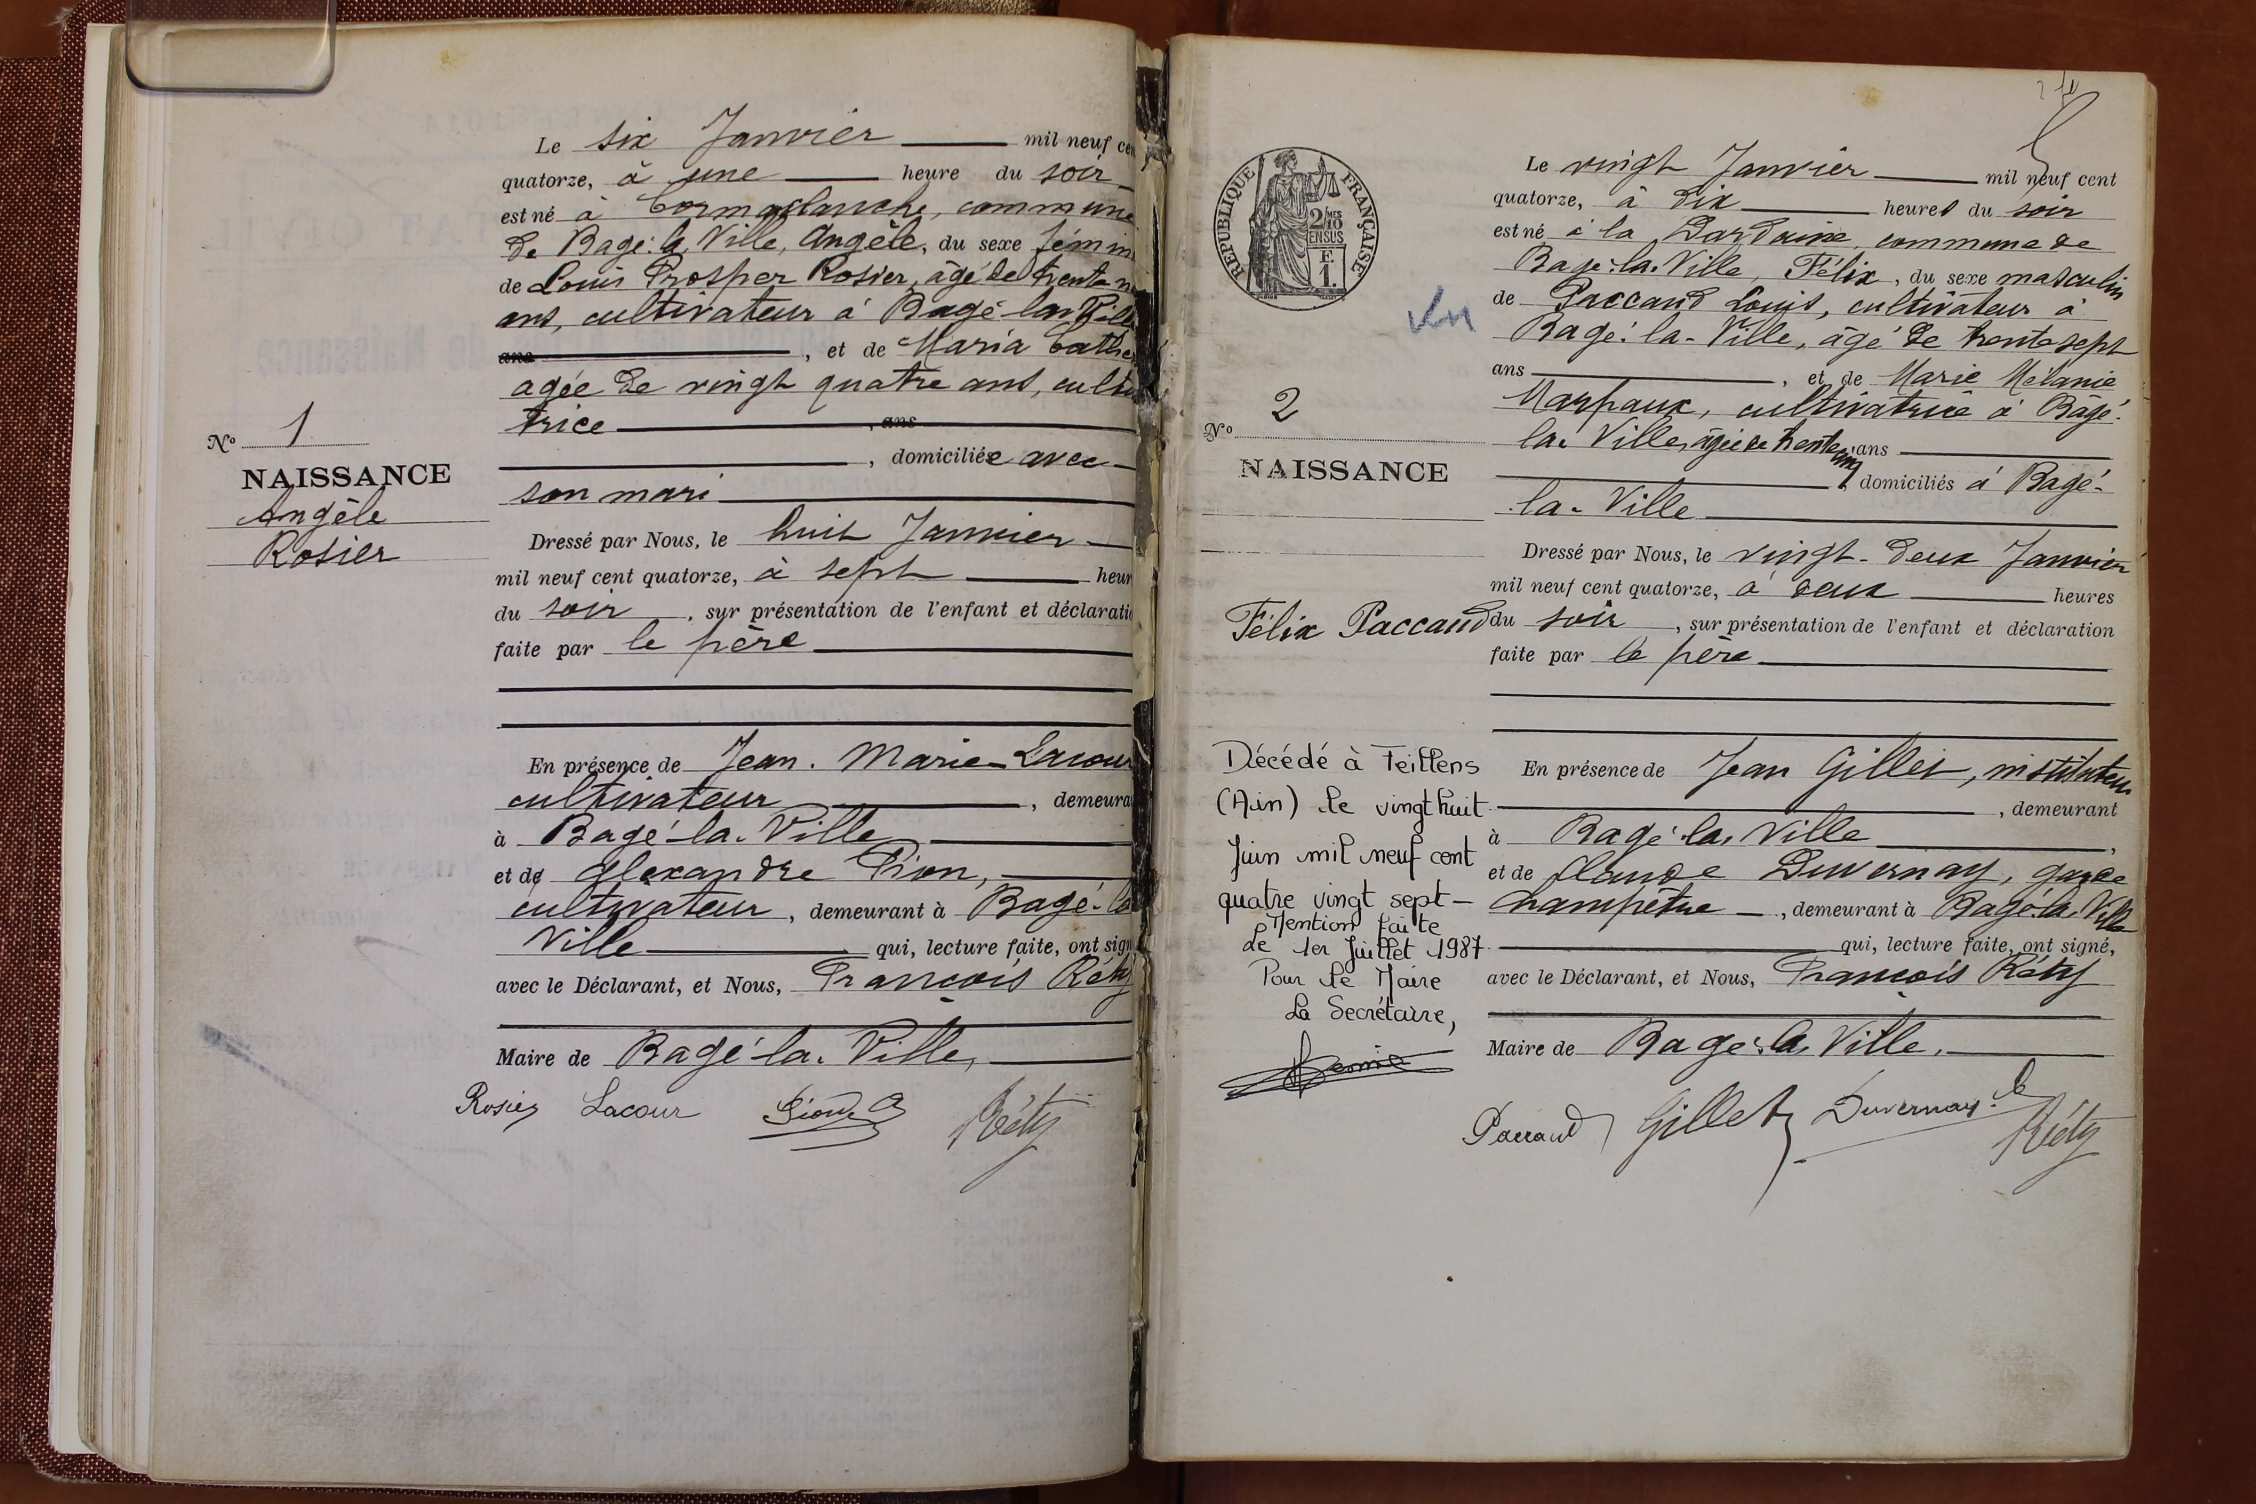 Le six Janvier mil neuf cen
quatorze, à une heure du soir
est né à Cormoranche, commune
de Bagé-la Ville, Angèle, du sexe fémin
de Louis Prosper Rosier, âgé de trente
ans, cultivateur à Bagé-la-Ville
ans, et de Maria Cathe
agée de vingt quatre ans, cultiva
trice, ans
, domiciliée avec
son mari
Dressé par Nous, le huit Janvier
mil neuf cent quatorze, à sept heur
du soir, sur présentation de l'enfant et déclaratio
faite par le père
En présence de Jean-Marie Lacour
cultivateur, demeura
à Bagé-la-Ville
et de Alexandre Pion,
cultivateur, demeurant à Bagé-la
Ville qui, lecture faite, ont sign
avec le Déclarant, et Nous, François Réty
Maire de Bagé-la-Ville,
Rosier Lacour Pion A Réty
No 1
NAISSANCE
Angèle
Rosier
RÉPUBLIQUE FRANÇAISE
2/10 MES
EN SUS
F.
1.
Vu
No 2
NAISSANCE
Félix Paccaud
Décédé à Feillens
(Ain) le vingt huit
Juin mil neuf cent
quatre vingt sept -
Mention faite
Le 1er Juillet 1987
Pour le Maire
La Secrétaire,
Le vingt Janvier mil neuf cent
quatorze, à dix heures du soir
est né à la commune de
Bagé-la-Ville, Félix, du sexe masculin
de Paccaud Louis, cultivateur à
Bagé-la-Ville, âgé de trente sept
ans, et de Marie Mélanie
Marpaux, cultivatrice à Bâgé-
la-Ville, âgée de trente cinq ans
, domiciliés à Bagé-
la-Ville
Dressé par Nous, le vingt-deux Janvier
mil neuf cent quatorze, à deux heures
du soir, sur présentation de l'enfant et déclaration
faite par le père
En présence de Jean Gillet, instituteur
, demeurant
à Bagé-la-Ville,
et de Claude Duvernay, garde
champêtre, demeurant à Bagé-la-Ville
qui, lecture faite, ont signé,
avec le Déclarant, et Nous, François Réty
Maire de Bagé-la-Ville.
Paccaud Gillet Duvernay Réty